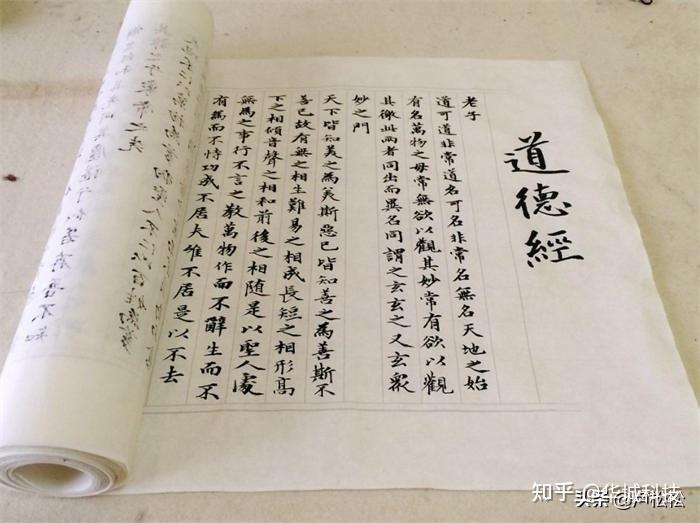 道德經
老子
道可道非常道名可名非常名無名天地之始
有名萬物之母常無欲以觀其妙常有欲以觀
其徼此兩者同出而異名同謂之玄玄之又玄衆
妙之門
天下皆知美之為美斯惡已皆知善之為善斯不
善已故有無之相生難易之相成長短之相形高
下之相傾音聲之相和前後之相随是以聖人處
無為之事行不言之教萬物作而不辭生而不
有為而不恃功成不居夫唯不居是以不去
知乎 @华城科技
头条 @卢松松